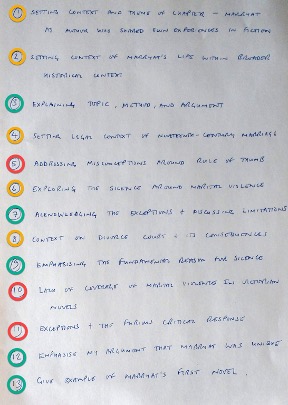 1 SETTING CONTEXT AND THEME OF CHAPTER - MARRYAT
AS AUTHOR WHO SHARED OWN EXPERIENCES IN FICTION
2 SETTING CONTEXT OF MARRYAT'S LIFE WITHIN BROADER
HISTORICAL CONTEXT
3 EXPLAINING TOPIC, METHOD, AND ARGUMENT
4 SETTING LEGAL CONTEXT OF NINETEENTH-CENTURY MARRIAGE
5 ADDRESSING MISCONCEPTIONS AROUND RULE OF THUMB
6 EXPLORING THE SILENCE AROUND MARITAL VIOLENCE
7 ACKNOWLEDGING THE EXCEPTIONS + DISCUSSING LIMITATIONS
8 CONTEXT ON DIVORCE COURT + ITS CONSEQUENCES
9 EMPHASISING THE FUNDAMENTAL REASON FOR SILENCE
10 LACK OF COVERAGE OF MARITAL VIOLENCE IN VICTORIAN
NOVELS
11 EXCEPTIONS + THE FURIOUS CRITICAL RESPONSE
12 EMPHASISE MY ARGUMENT THAT MARRYAT WAS UNIQUE
13 GIVE EXAMPLE OF MARRYAT'S FIRST NOVEL.